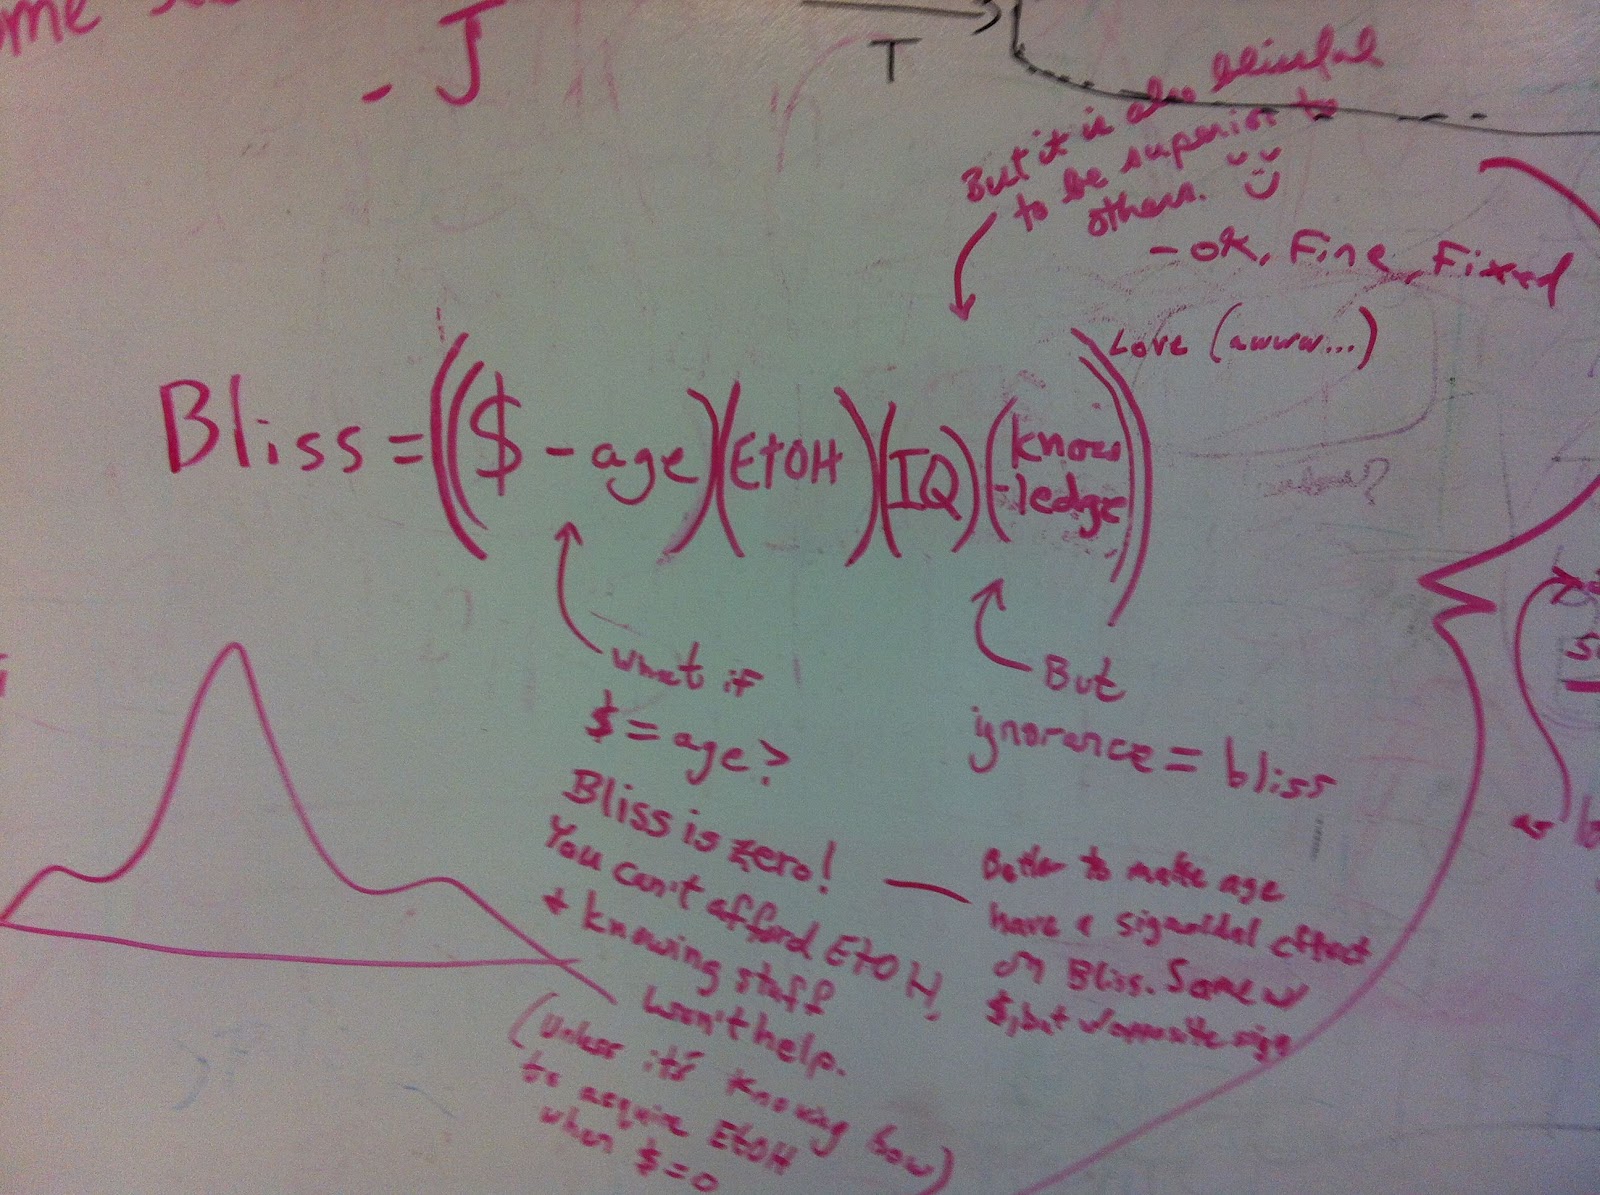 - J
T
But it is also blissful
to be superior to
others.
- OK, Fine, Fixed
Love (awww...)
Bliss = (($ - age)(EtOH)(IQ)(know
-ledge))
What if
$ = age?
But
ignorance = bliss
Bliss is zero!
You can't afford EtOH,
+ knowing stuff
won't help.
(Unless it's knowing how)
to acquire EtOH
when $=0
Better to make age
have a sigmoidal effect
on Bliss. Same w
$, but w/opposite sign